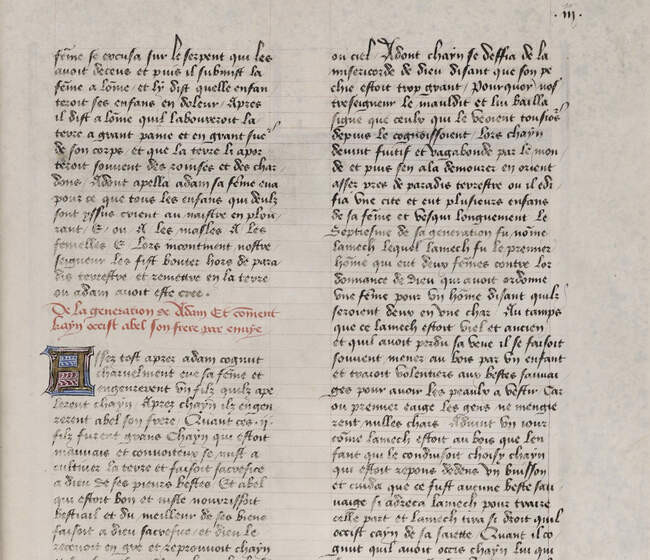 .iij.
feme se excusa sur le serpent qui les
avoit deceus et puis il submist la
feme a lome et ly dist quelle enfan
teroit ses enfans en doleur Apres
il dist a lome quil laboureroit la
terre a grant paine et en grant sueur
de son corps et que la terre li apor
teroit souvent des ronses et des char
dons Adont apella adam sa feme eva
pour ce que tous les enfans qui deulz
sont yssus crient au naistre en plou
rant E ou A les masles A les
femelles E Lors incontinent nostre
seigneur les fist bouter hors de para
dis terrestre et remettre en la terre
ou adam avoit este cree .
De la generation de Adam Et coment
kayn occist abel son frere par envye
Assez tost aprez adam cognut
charnelment eve sa feme et
engenrerent ung filz quilz ape
lerent chayn Aprez chayn ilz engen
rerent abel son frere Quant ces .ij.
filz furent grans Chayn qui estoit
mauvais et convoiteux se mist a
cultiver la terre et faisoit sacrefice
a dieu de ses pieurs bestes Et abel
qui estoit bon et juste nourrissoit
bestiail et du meilleur de ses biens
faisoit a dieu sacrefice et dieu le
recevoit en gre et reprouvoit chayn
ou ciel Adont chayn se deffia de la
misericorde de dieu disant que son pe
chie estoit trop grant Pourquoy nos
tre seigneur le mauldit et lui bailla
signe que ceulx qui le veoient tousiours
depuis le cognoissoient Lors chayn
devint fuitif et vagabonde par le mon
de et puis sen ala demourer en orient
assez pres de paradis terrestre ou il edi
fia une cite et eut plusieurs enfans
de sa feme et vesqui longuement Le
septiesme de sa generation fu nome
lamech lequel lamech fu le premier
home qui eut deux femes contre lor
donnance de dieu qui avoit ordone
une feme pour un home disant quilz
seroient deux en une char Au temps
que ce lamech estoit viel et ancien
et quil avoit perdu sa veue il se faisoit
souvent mener au bois par un enfant
et traioit volentiers aux bestes sauva
ges pour avoir les peaulx a vestir Car
ou premier eaige les gens ne mengie
rent nulles chars Advint un jour
come lamech estoit au bois que len
fant qui le conduisoit choisy chayn
qui estoit repons dedens un buisson
et cuida que ce fust aucune beste sau
vaige si adreca lamech pour traire
celle part et lamech tira si droit quil
occist cayn de sa saiette Quant il co
gnut quil avoit occis chayn lui qui